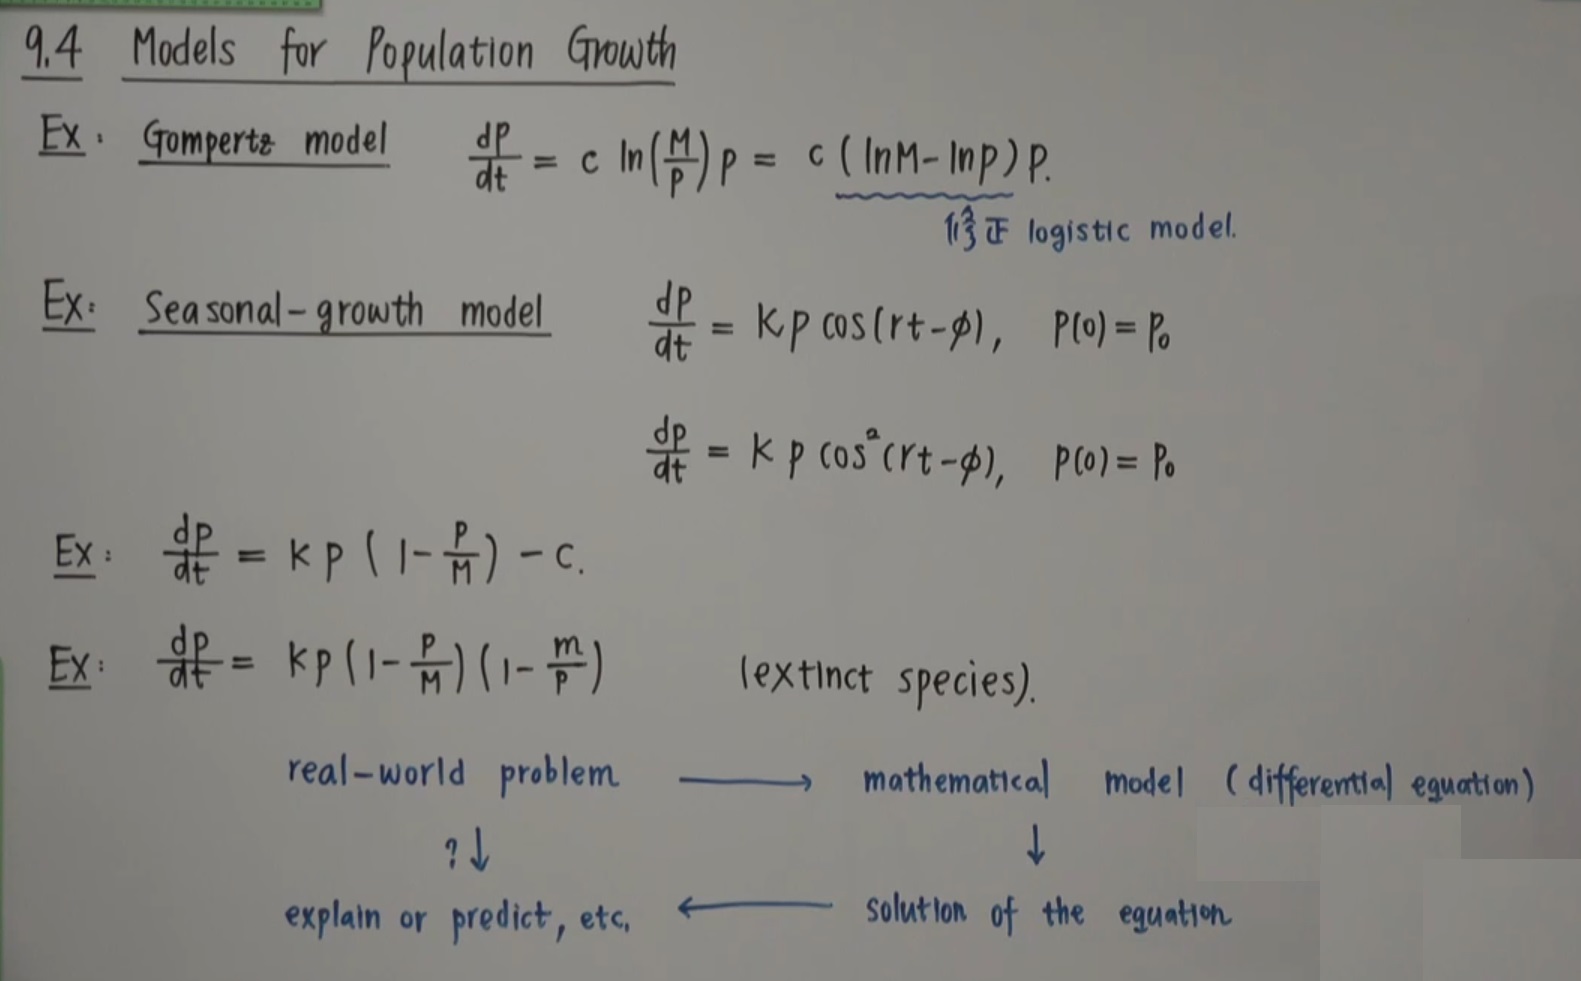 9.4 Models for Population Growth
Ex: Gompertz model dP/dt = c ln(M/P) P = c (lnM - lnP) P.
修正 logistic model.
Ex: Seasonal-growth model dP/dt = kP cos(rt-φ), P(0) = P₀
dP/dt = kP cos²(rt-φ), P(0) = P₀
Ex: dP/dt = kP (1 - P/M) - c.
Ex: dP/dt = kP (1 - P/M) (1 - m/P) (extinct species).
real-world problem → mathematical model (differential equation)
? ↓ ↓
explain or predict, etc. ← solution of the equation